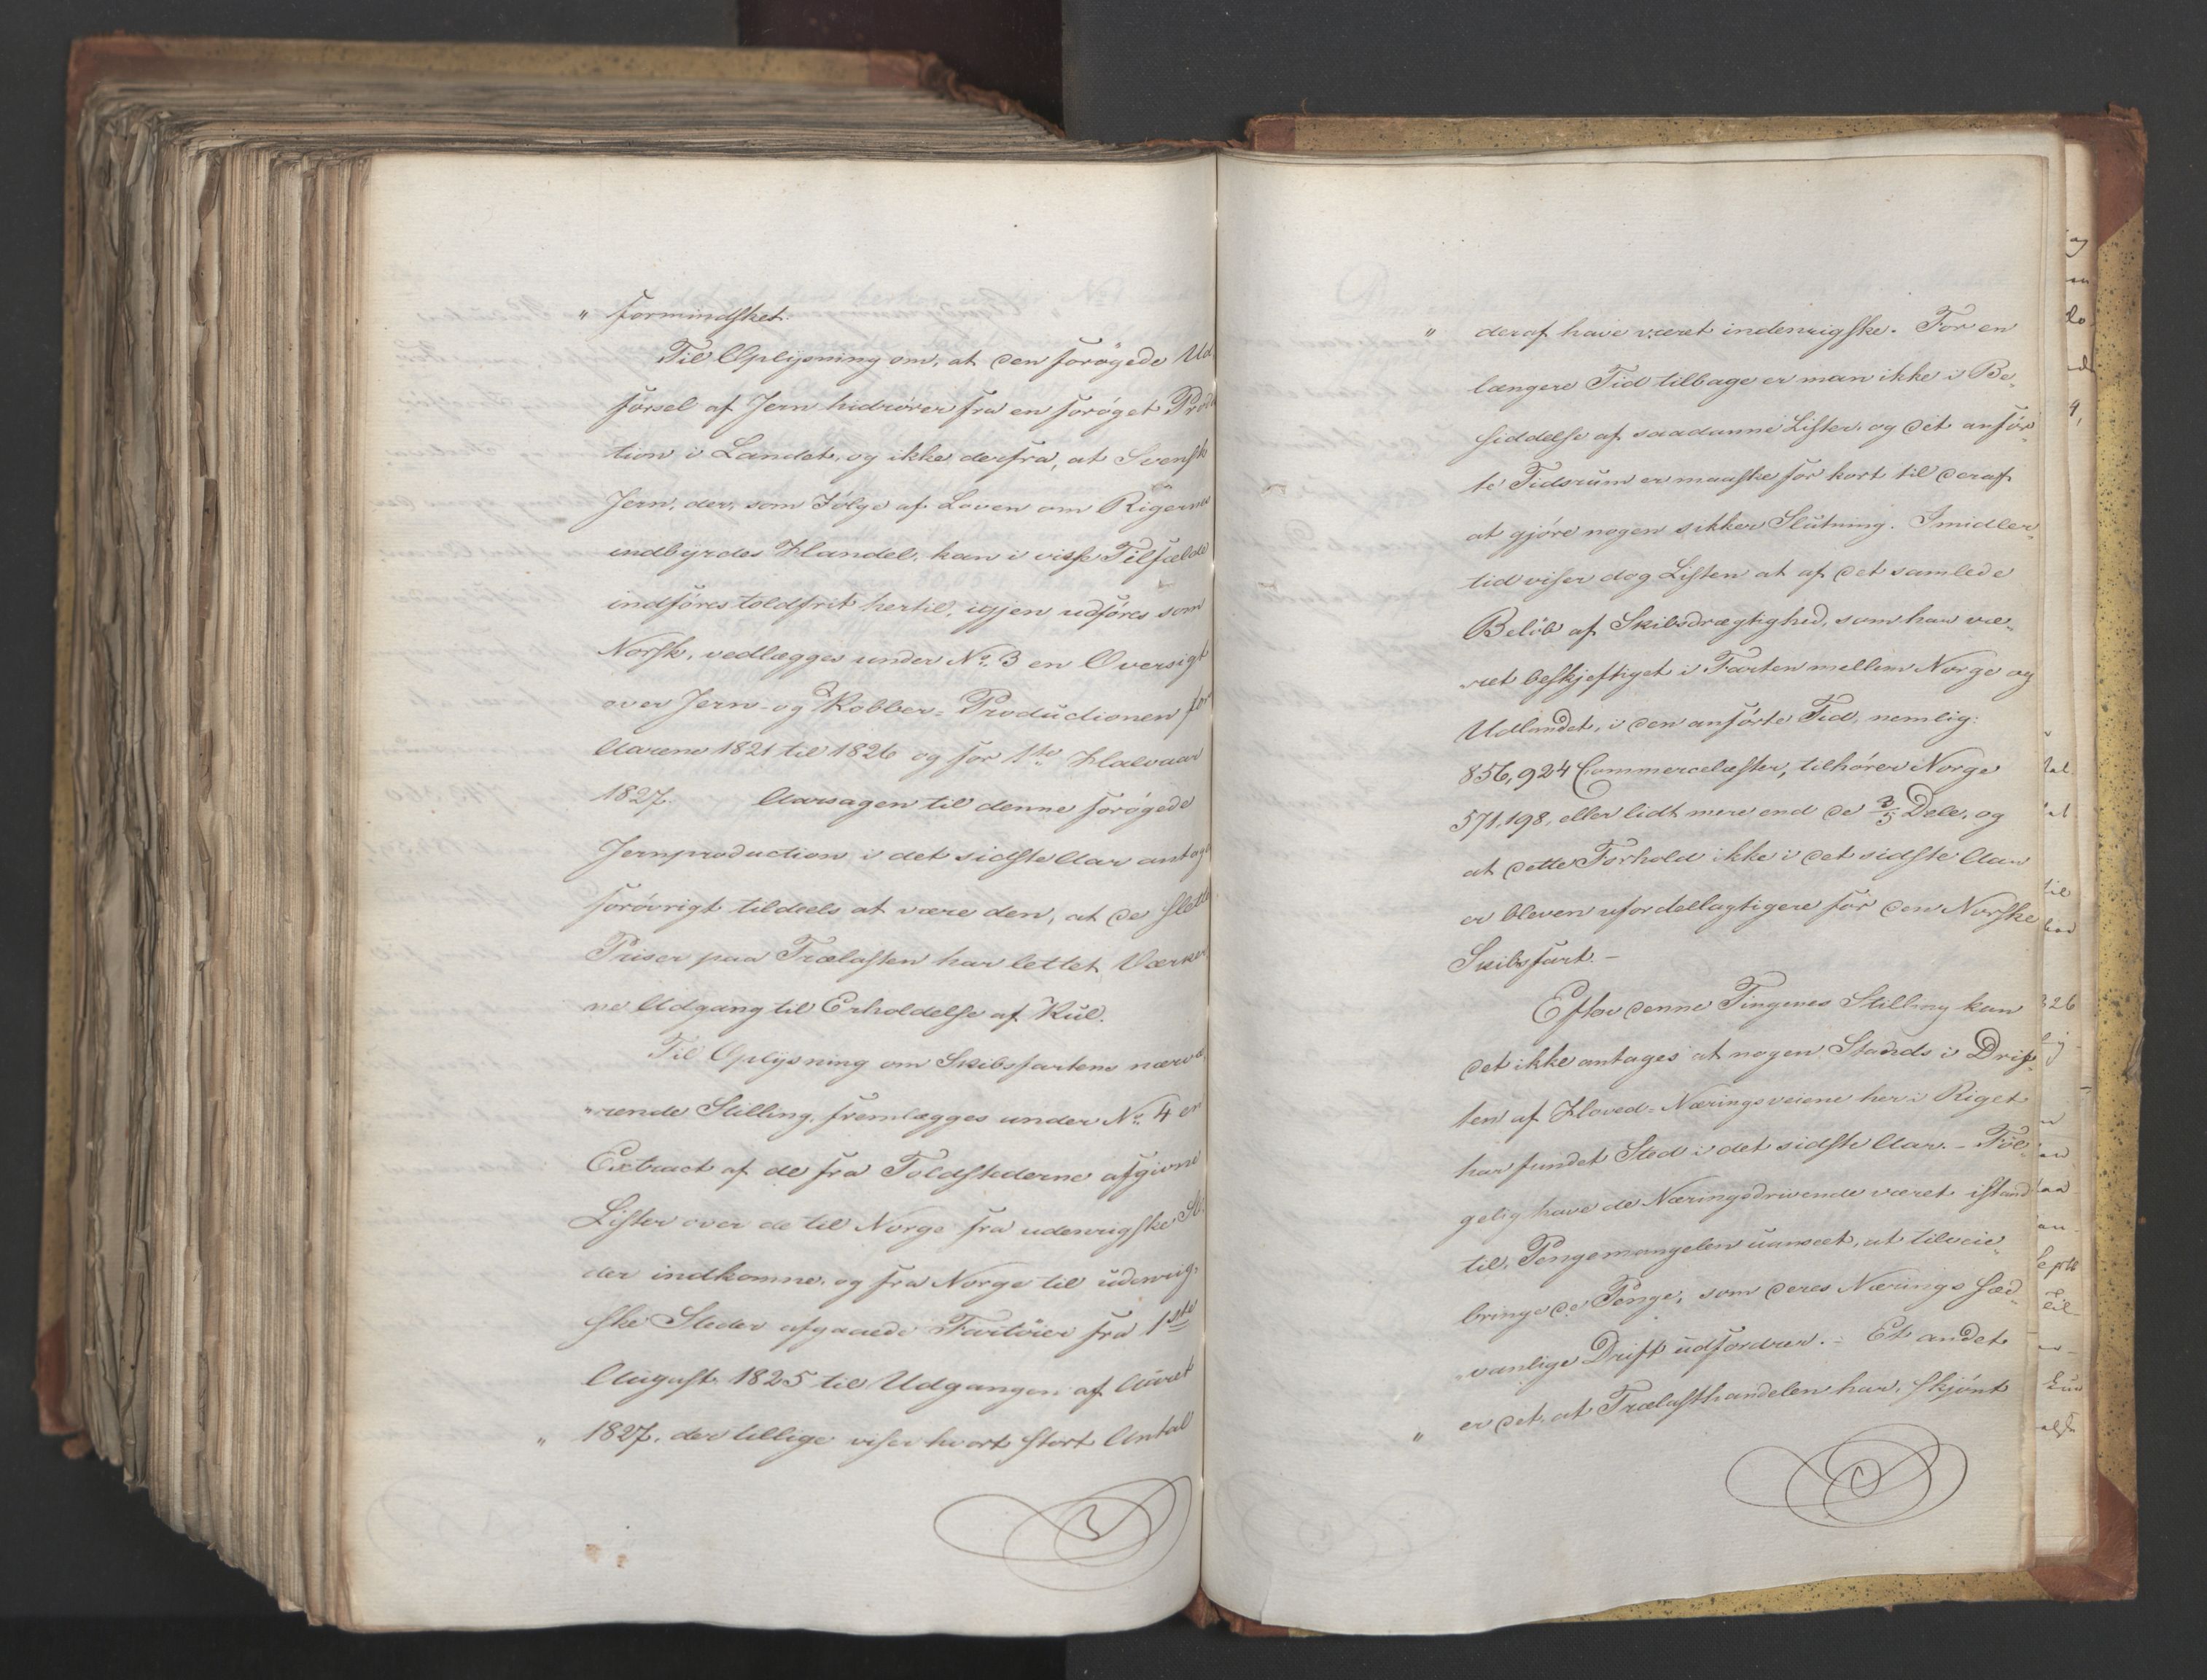 " formindsket.
Til Oplysning om, at den forögede Ud
försel af Jern hidrörer fra en foröget Prod
tion i Landet, og ikke derfra, at Svensk
Jern, der, som Fölge af Loven om Rigernes
indbyrdes Handel, kan i visse Tilfælde
indföres toldfrit hertil, igjen udföres som
Norsk, vedlægges under No. 3 en Oversigt
over Jern- og Kobber-Productionen for
Aarene 1821 til 1826 og for 1ste Halvaar
1827. Aarsagen til denne forögede
Jernproduction i det sidste Aar antages
forövrigt tildeels at være den, at de slette
Priser paa Trælasten har lettet Værker
ne Adgang til Erholdelse af Kul.
Til Oplysning om Skibsfartens nærvæ
"rende Stilling, fremlægges under No. 4 en
Extract af de fra Toldstederne afgivne
Lister over de til Norge fra udenrigske St.
der indkomne, og fra Norge til udenrig-
ske Steder afgaaede Fartöier fra 1ste
August 1825 til Udgangen af Aaret
" 1827, der tillige viser hvort stort Antal
" deraf have været indenrigske. For en
længere Tid tilbage er man ikke i Be-
siddelse af saadanne Lister, og det anför
te Tidsrum er maaske for kort til deraf
at gjöre nogen sikker Slutning. Imidler-
tid viser dog Listen at af det samlede
Belöb af Skibsdrægtighed, som har væ-
ret beskjeftiget i Farten mellem Norge og
Udlandet, i den anförte Tid, nemlig:
856,924 Commercelæster, tilhörer Norge
571,198, eller lidt mere end de 3/5 Dele, og
at dette Forhold ikke i det sidste Aar
er bleven ufordeelagtigere for den Norske
Skibsfart. -
Efter denne Tingenes Stilling kan
det ikke antages at nogen Stands i Drif-
ten af Hoved-Næringsveiene her i Riget
har fundet Sted i det sidste Aar. - Föl-
gelig have de Næringsdrivende været istand
til, Pengemangelen uanseet, at tilveie-
bringe de Penge, som deres Nærings sæd-
"vanlige Drift udfordrer. - Et andet
" er det, at Trælasthandelen har, skjönt